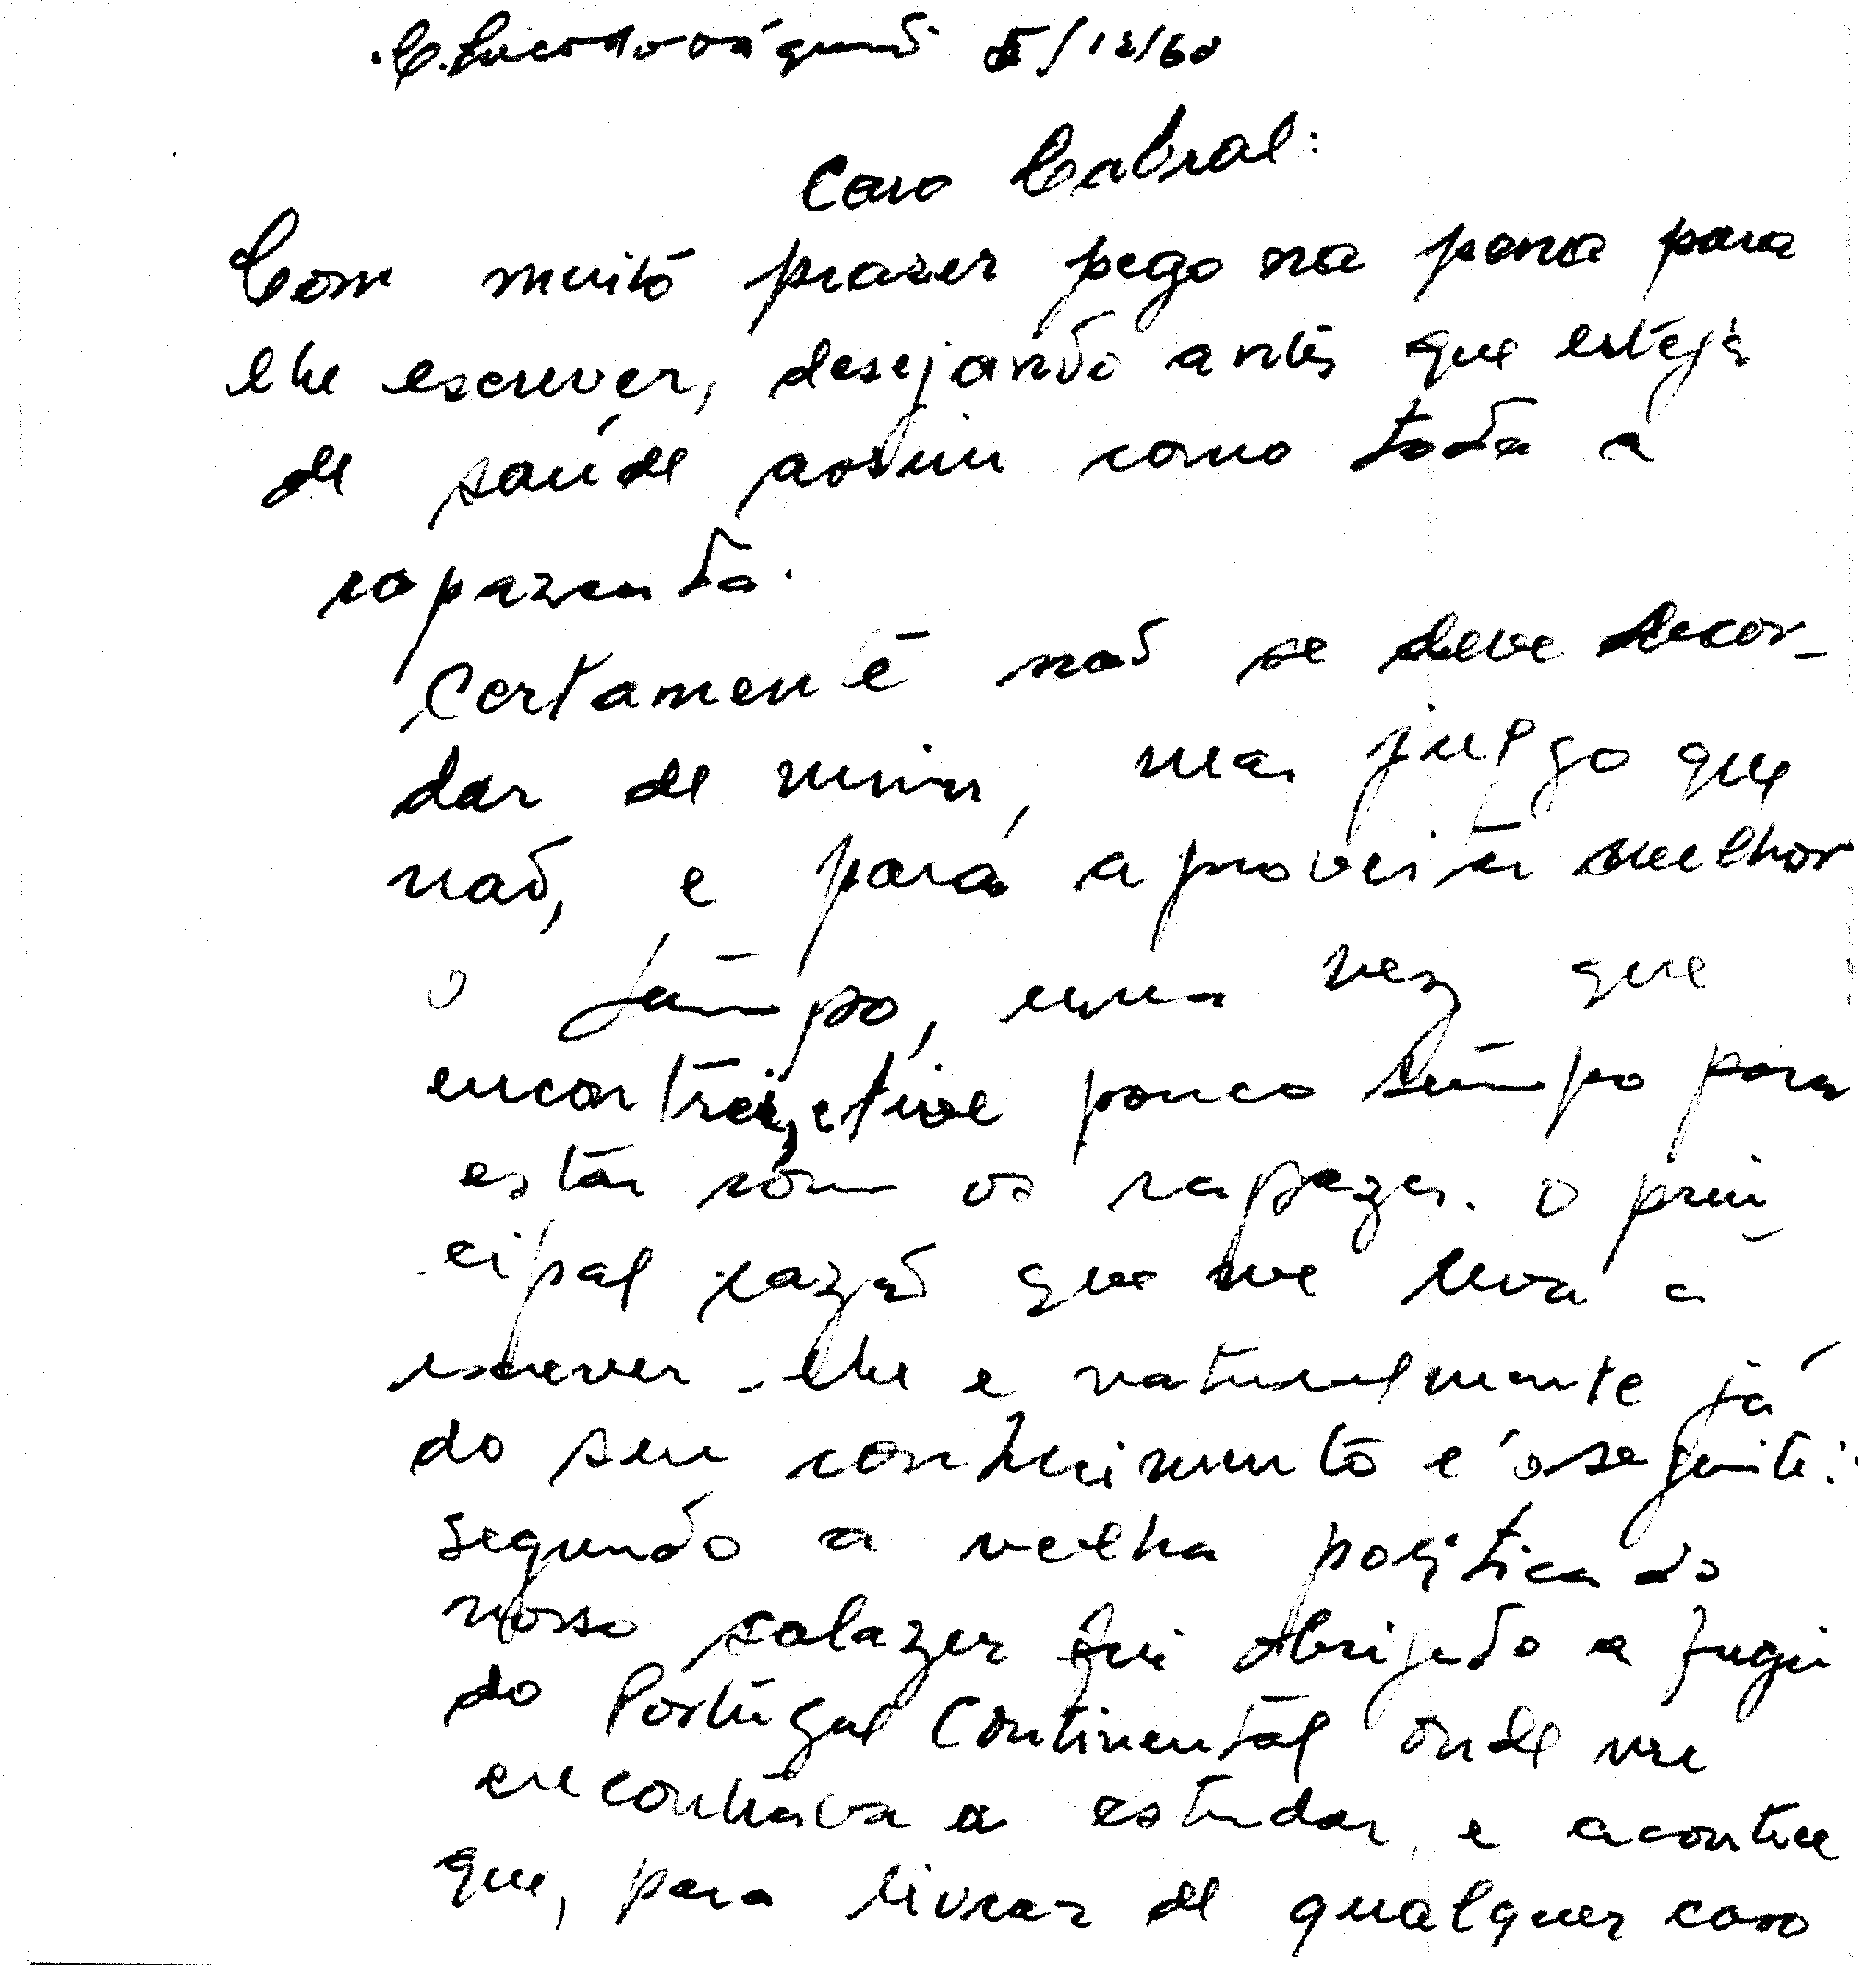 5/12/60
Caro Cabral:
Com muito prazer pego na pena para
lhe escrever, desejando antes que esteja
de saúde assim como toda a
rapazeada.
Certamente não se deve decor-
dar de mim, mas julgo que
não, e para aproveitar melhor
o tempo, uma vez que
encontrei, e tive pouco tempo para
estar com os rapazes. O prin-
cipal razão que me leva a
escrever-lhe e naturalmente já
do seu conhecimento é o seguinte:
segundo a velha política do
nosso salazer fui obrigado a fugir
do Portugal Continental onde me
encontrava a estudar, e acontece
que, para livrar de qualquer caso